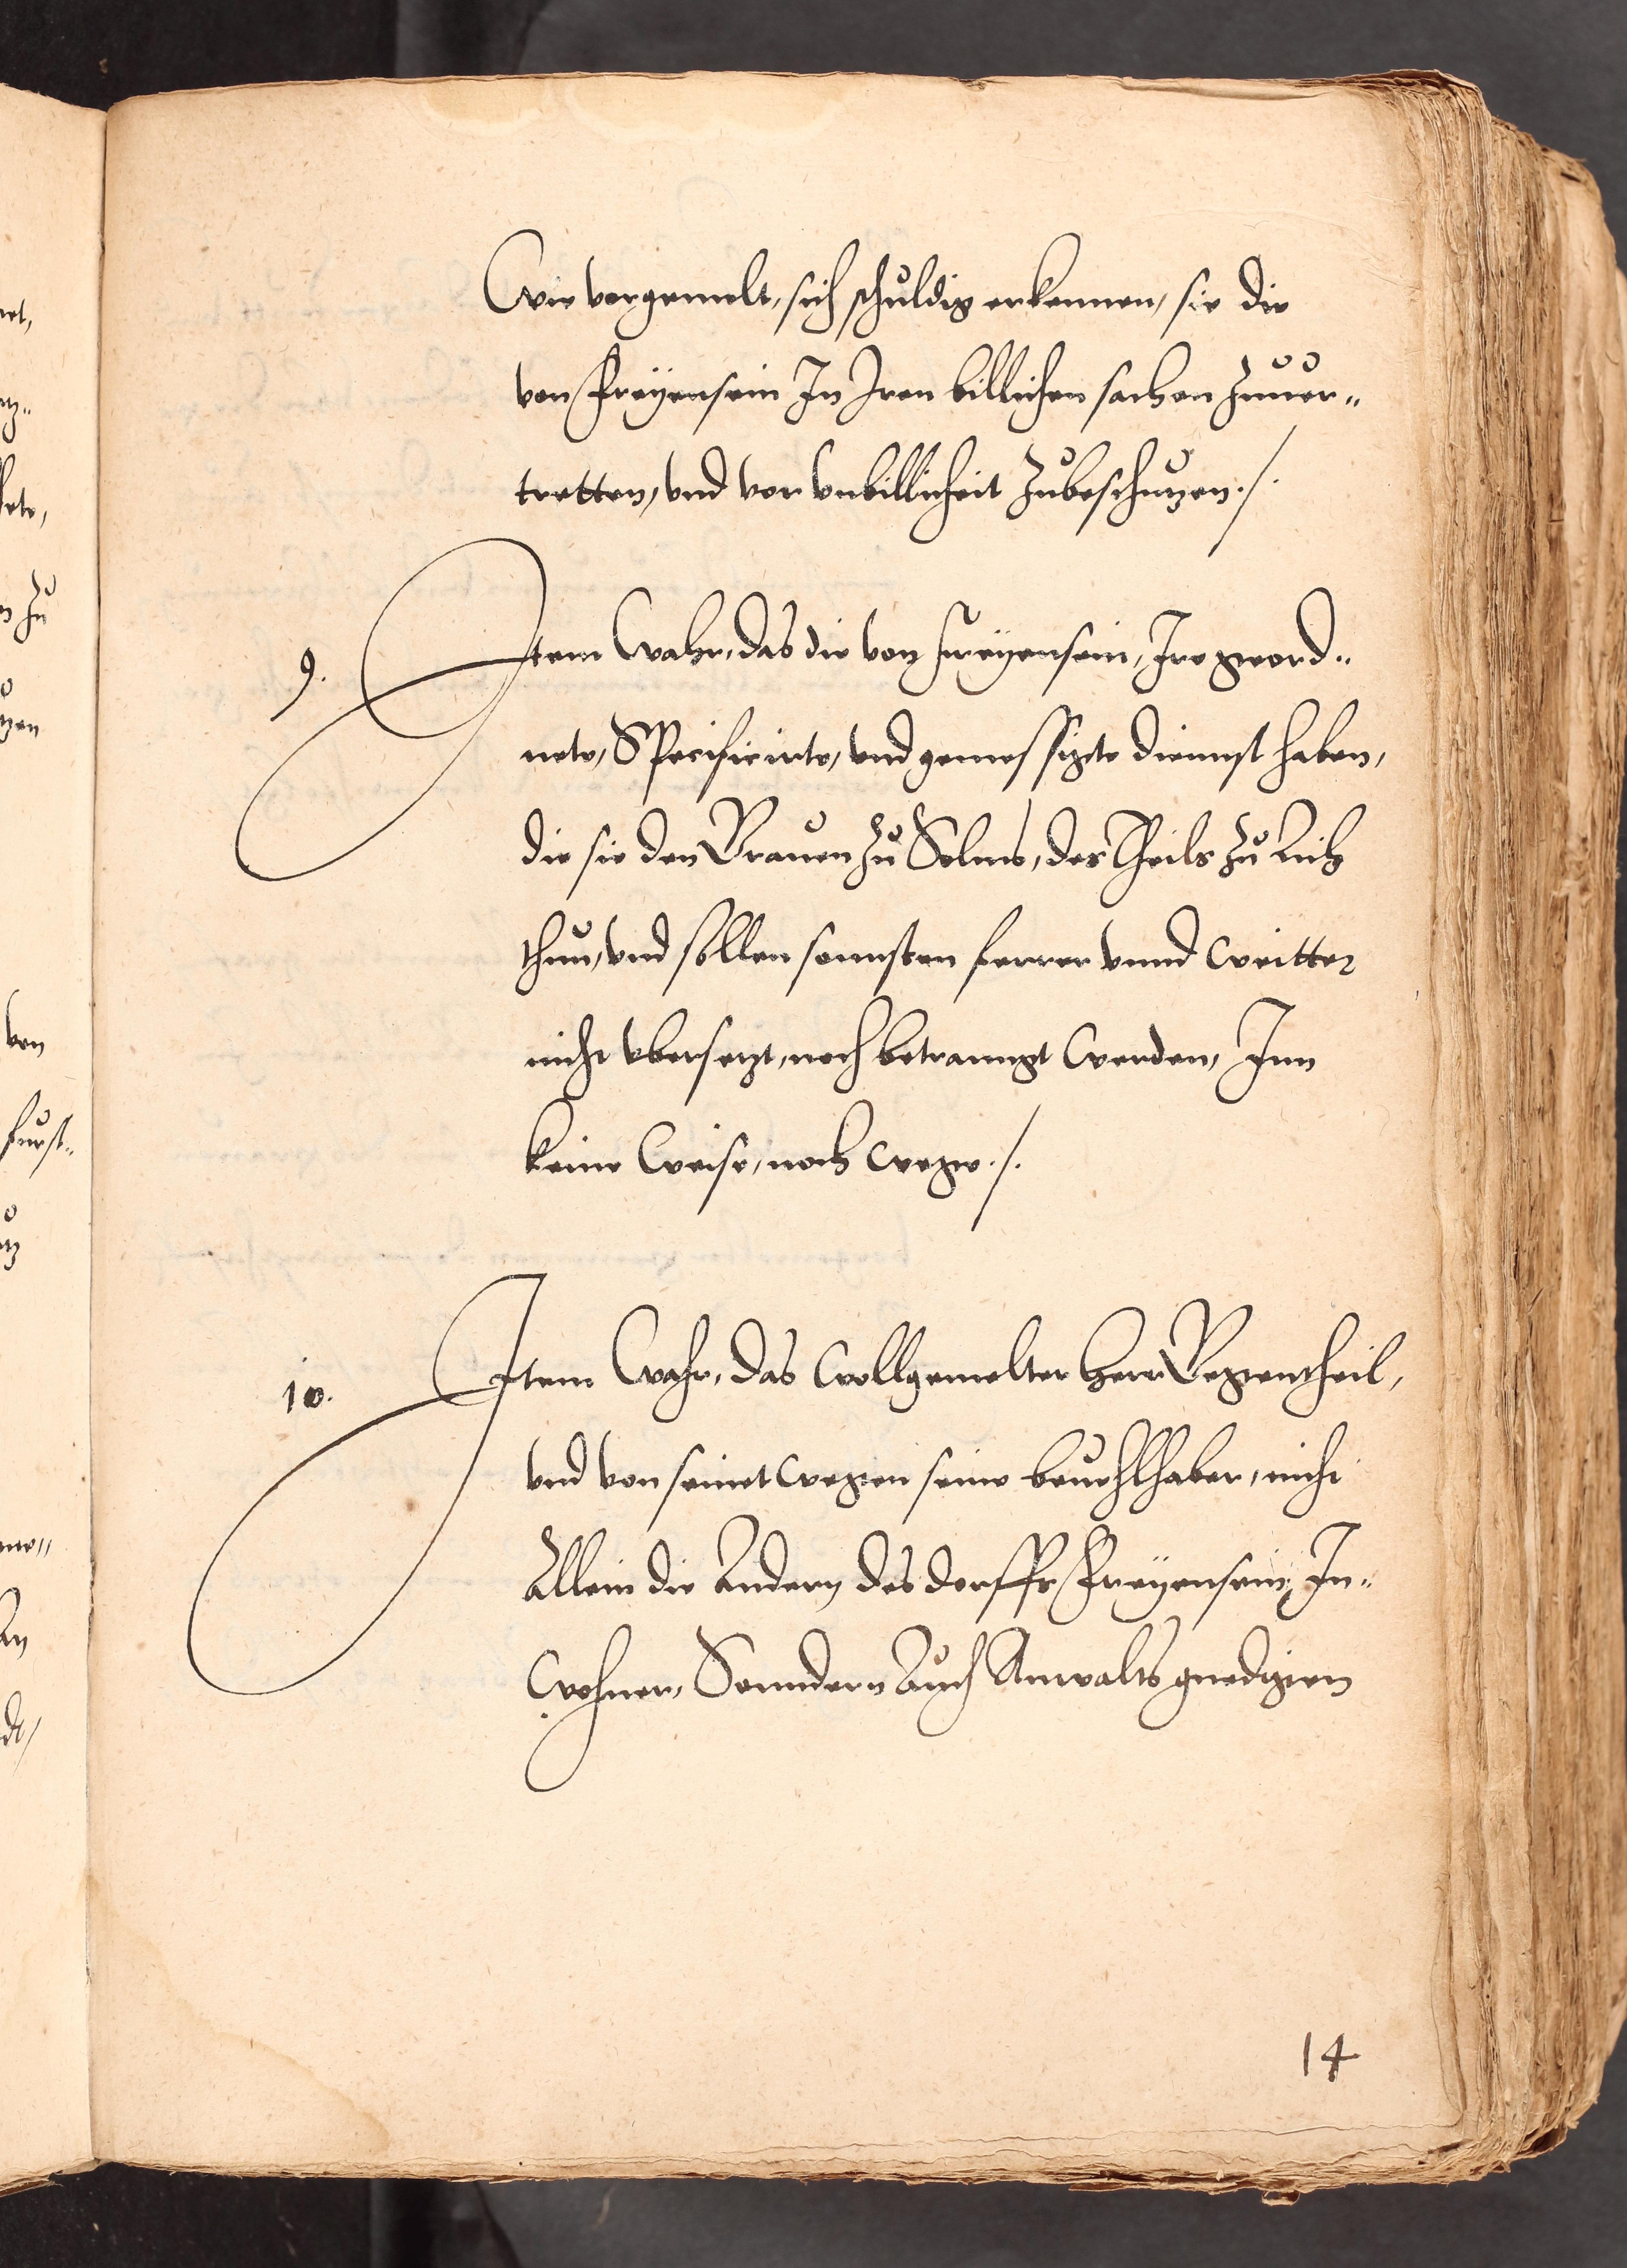 Wie vorgemelt, sich schuldig erkennen, sie die
von Freÿensein In Iren billichen sachen Zuuer„
tretten, vnd vor vnbillicheit Zubeschutzen ./.
9. Item Wahr, das die von Freÿensein, Ire geord„
nete, Specificirte, vnd gemessigte diennst haben,
die sie den Grauen zu Solms, des Theils zu Lich
thun, vnd sollen sonnsten ferrer vnnd weitter
nicht vbersetzt, noch betranngt werden, Inn
keine Weise, noch wege ./.
10. Item Wahr, das Wollgemelter Herr Gegentheil,
vnd von seinet wegen seine beuehlhaber, nicht
Allein die Andern des dorffs Freÿensein, In„
wohner, Sonndern Auch Anwalts gnedigen
14